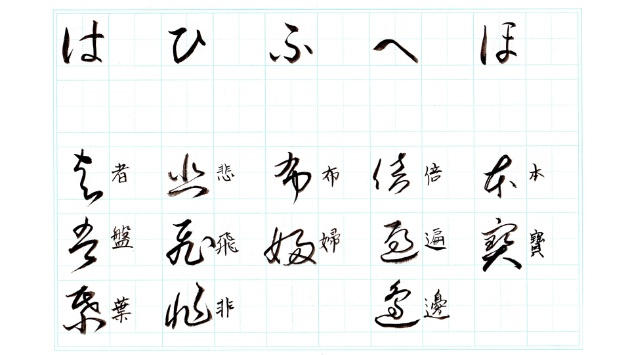 は ひ ふ へ ほ
者 悲 布 倍 本
盤 飛 婦 遍 寳
葉 非 邊